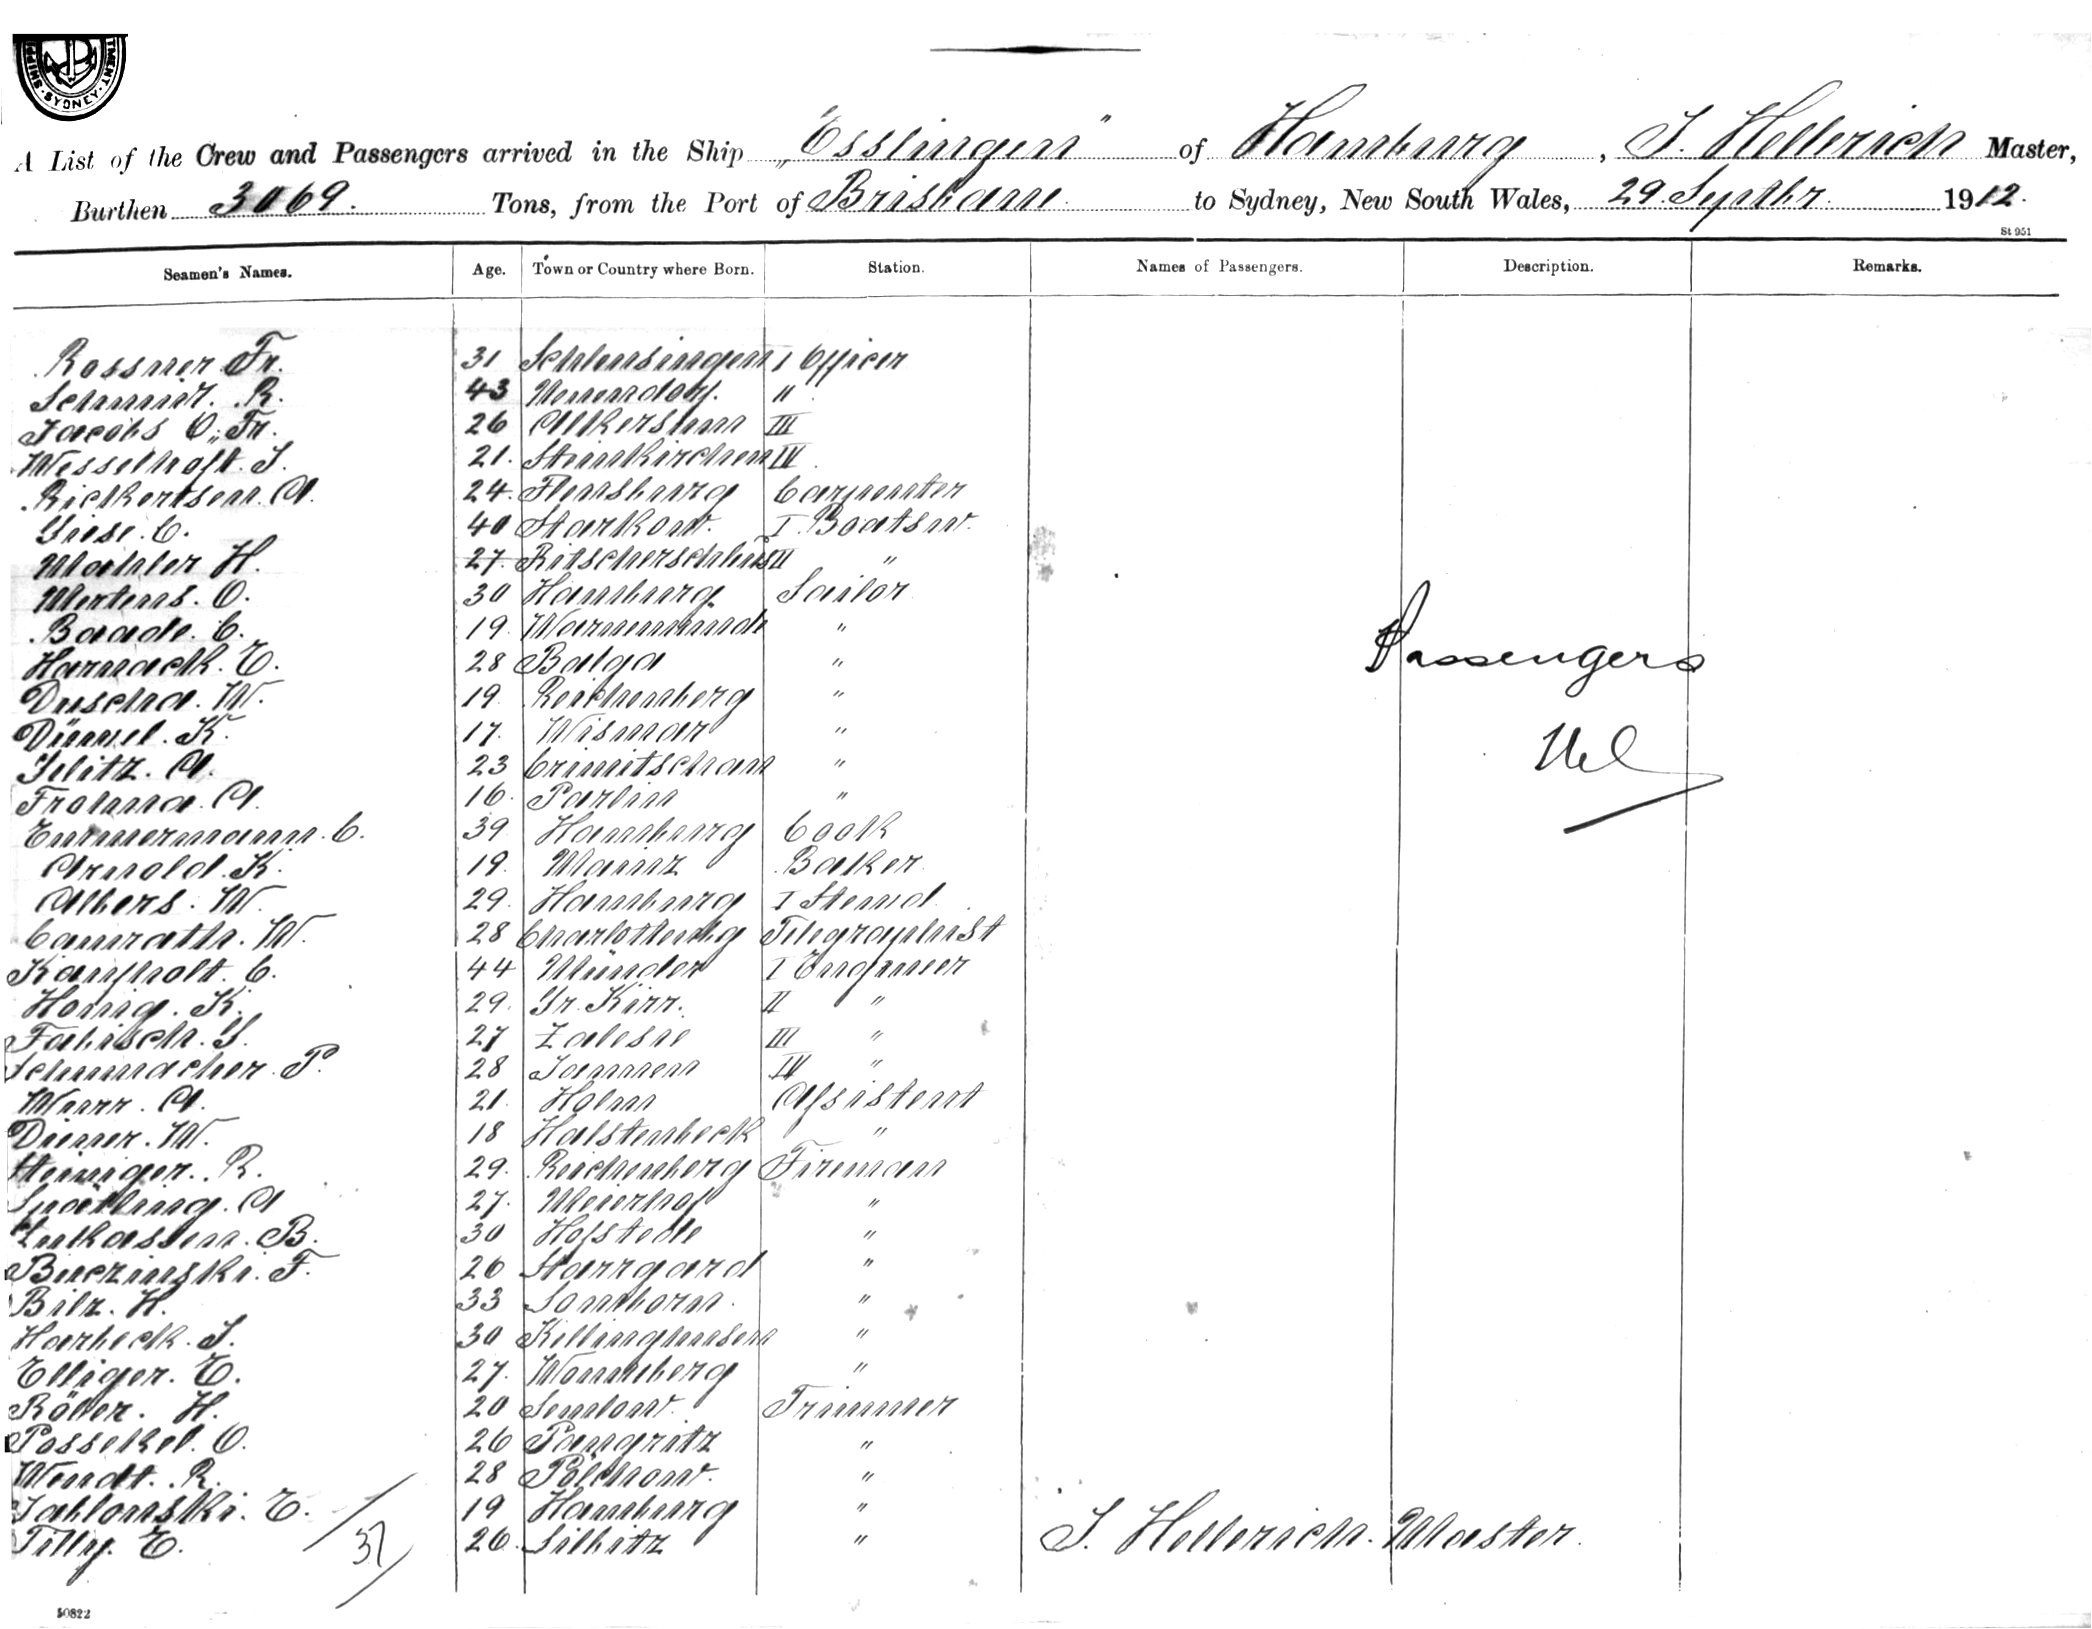 SHIPP TMENT. SYDNEY.
A List of the Crew and Passengers arrived in the Ship „Esslingen" of Hamburg, J. Hellerich Master,
Burthen 3069. Tons, from the Port of Brisbane to Sydney, New South Wales, 29 Septbr. 1912.
St 951
Seamen's Names. Age. Town or Country where Born. Station. Names of Passengers. Description. Remarks.
Rossner Fr. 31 Schleusingen I Officer
Schmidt. R. 43 Neuendorf. "
Jacobs O. Fr. 26 Alkersum III
Wesselhoft. J. 21. Steinkirchen IV
Rickertsen. A. 24. Flensburg Carpenter
Giese. C. 40 Starkow. I. Boatsw.
Mahler H. 27. Ritscherschleuse II "
Mertens. O. 30 Hamburg Sailor
Baade. C. 19. Warnemünde "
Harnack. E. 28 Balga "
Passengers
Duscha. W. 19 Reichenberg "
Dümmel. K. 17. Wismar "
Nil
Jelitz. A. 23 Crimitschau "
Frohna. A. 16. Parlin "
C. 39 Hamburg Cook
Arnold. K. 19. Mainz Baker
Albers. W. 29. Hamburg I Stewd.
Camrath. W. 28 Charlottenbg Telegraphist
Kampholt. C. 44 Münder I Engineer
Honig. K. 29. Gr. Kirr. II "
Fabisch. G. 27 Zalesie III "
Schumacher. P. 28 Jannen IV "
A. 21. Holm Assistent
Diener. W. 18 Halstenbeck "
Heiniger. R. 29. Reichenberg Fireman
Spätling. A 27. Meierhof "
Lukassen. B. 30 Hofstede "
Buczinski. F. 26 Stargard "
Bilz. H. 33 Somborn. "
Harbeck. J. 30 Kellinghusen "
Elliger. E. 27. Wonneberg "
Röver. H. 20 Semlow. Trimmer
Possekel. O. 26 Pangritz "
Wendt. R. 28 Pölchow. "
Jablonski. E. 19 Hamburg "
Tilly. E. 37 26. Silbitz " J. Hellerich. Master.
50822